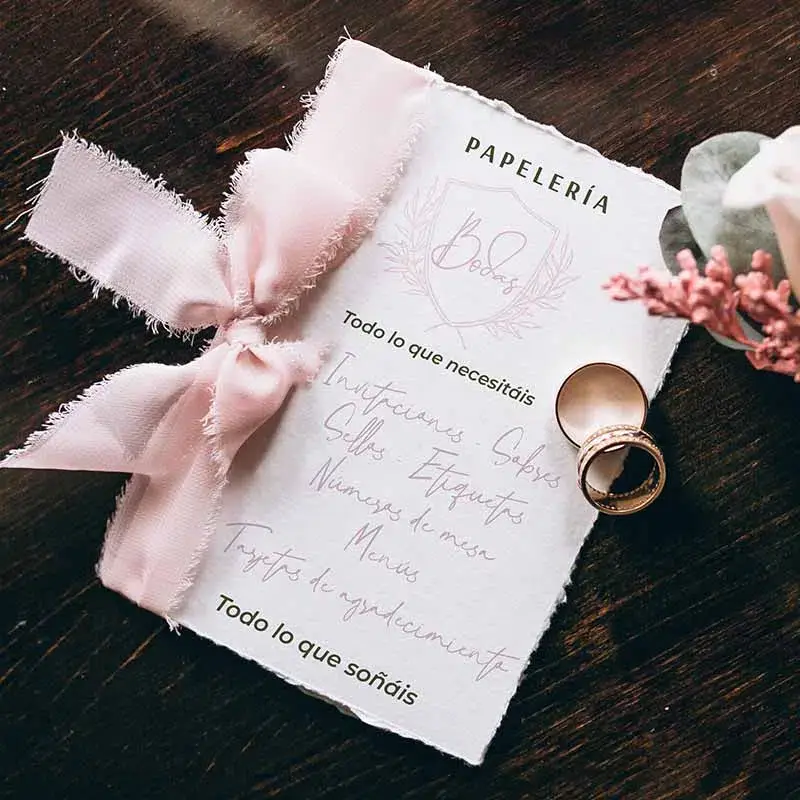 PAPELERÍA
Bodas
Todo lo que necesitáis
Invitaciones . Sobres
Sellos . Etiquetas
Números de mesa
Menús
Tarjetas de agradecimiento
Todo lo que soñáis